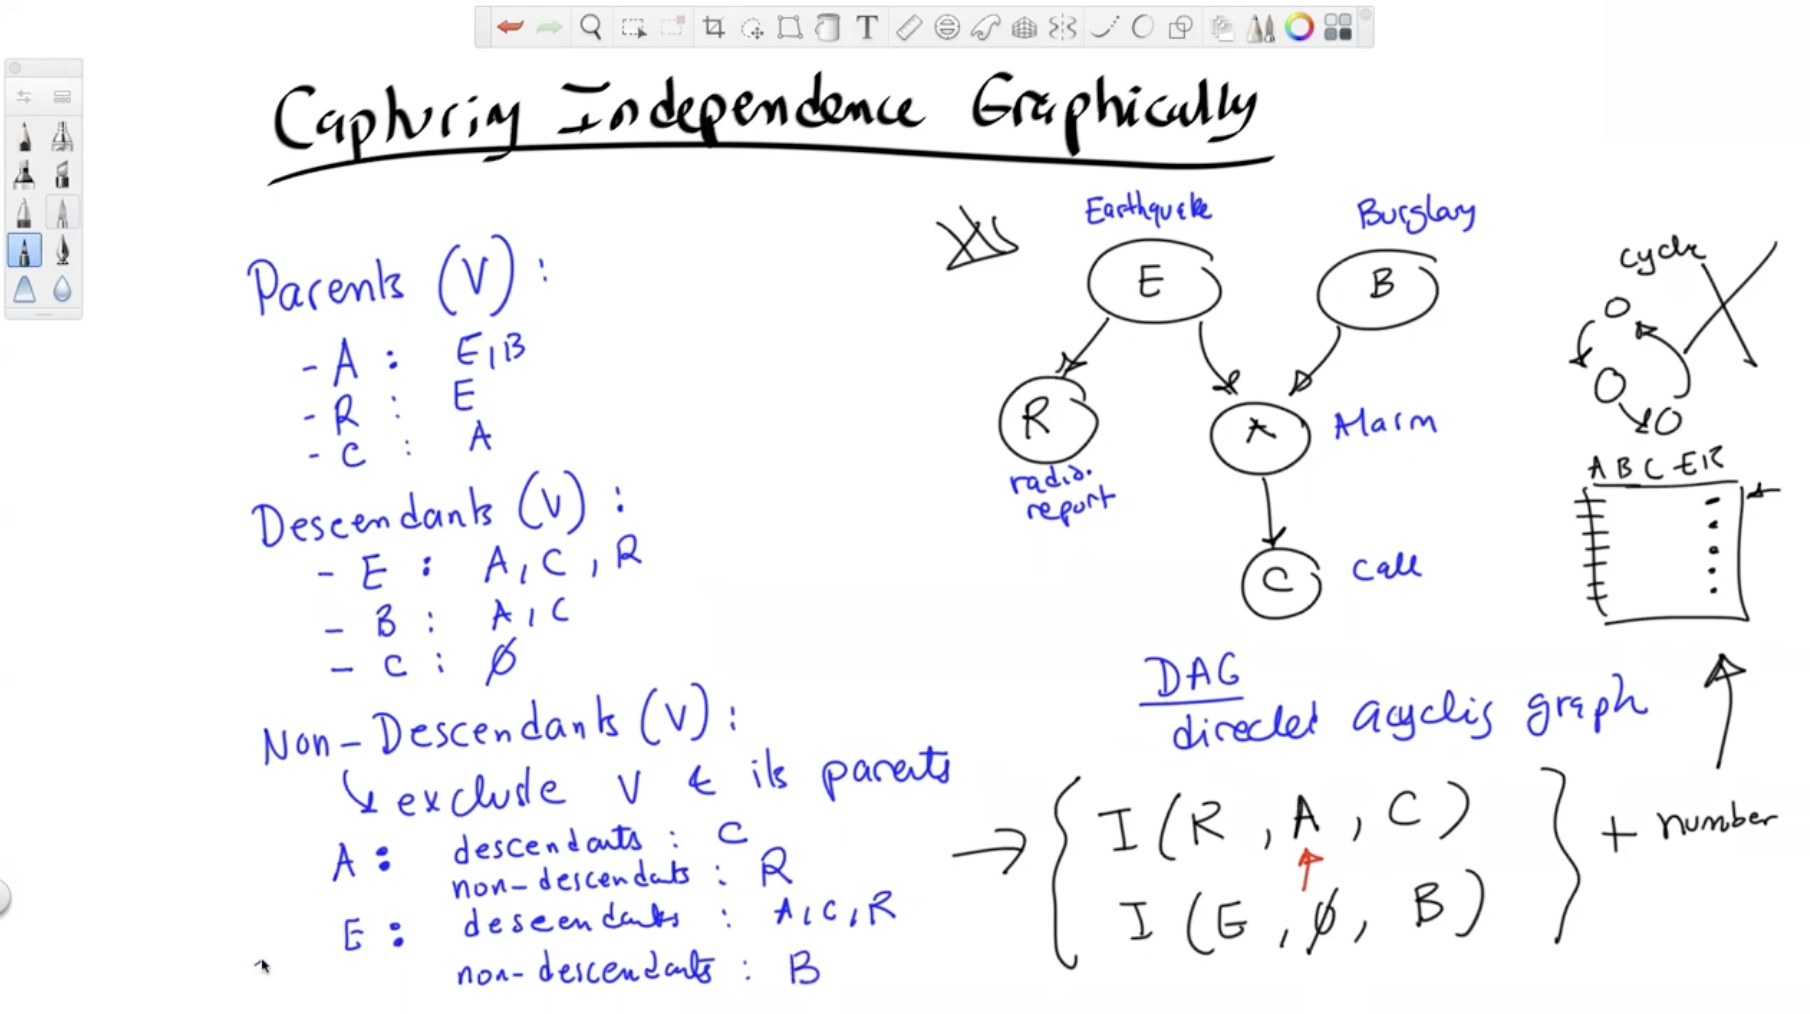 Capturing Independence Graphically
Parents (V) :
- A : E, B
- R : E
- C : A
Descendants (V) :
- E : A, C, R
- B : A, C
- C : ∅
Non-Descendants (V) :
↳ exclude V & its parents
A : descendants : C
non-descendants : R
E : descendants : A, C, R
non-descendants : B
Earthquake
Burglary
E
B
R
A
Alarm
radio
report
C
Call
cycle
A B C E R
DAG
directed acyclic graph
→ { I (R, A, C)
I (E, ∅, B) } + number
T